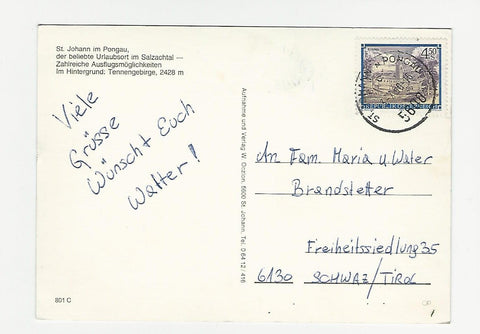 St. Johann im Pongau,
der beliebte Urlaubsort im Salzachtal —
Zahlreiche Ausflugsmöglichkeiten
Im Hintergrund: Tennengebirge, 2428 m
Viele
Grüsse
Wünscht Euch
Walter!
801 C
Aufnahme und Verlag W. Onzion, 5600 St. Johann, Tel. 0 64 12 / 416
4.50
REPUBLIK ÖSTERREICH
5600
An Fam. Maria u. Walter
Brandstetter
Freiheitssiedlung 35
6130 SCHWAZ/TIROL